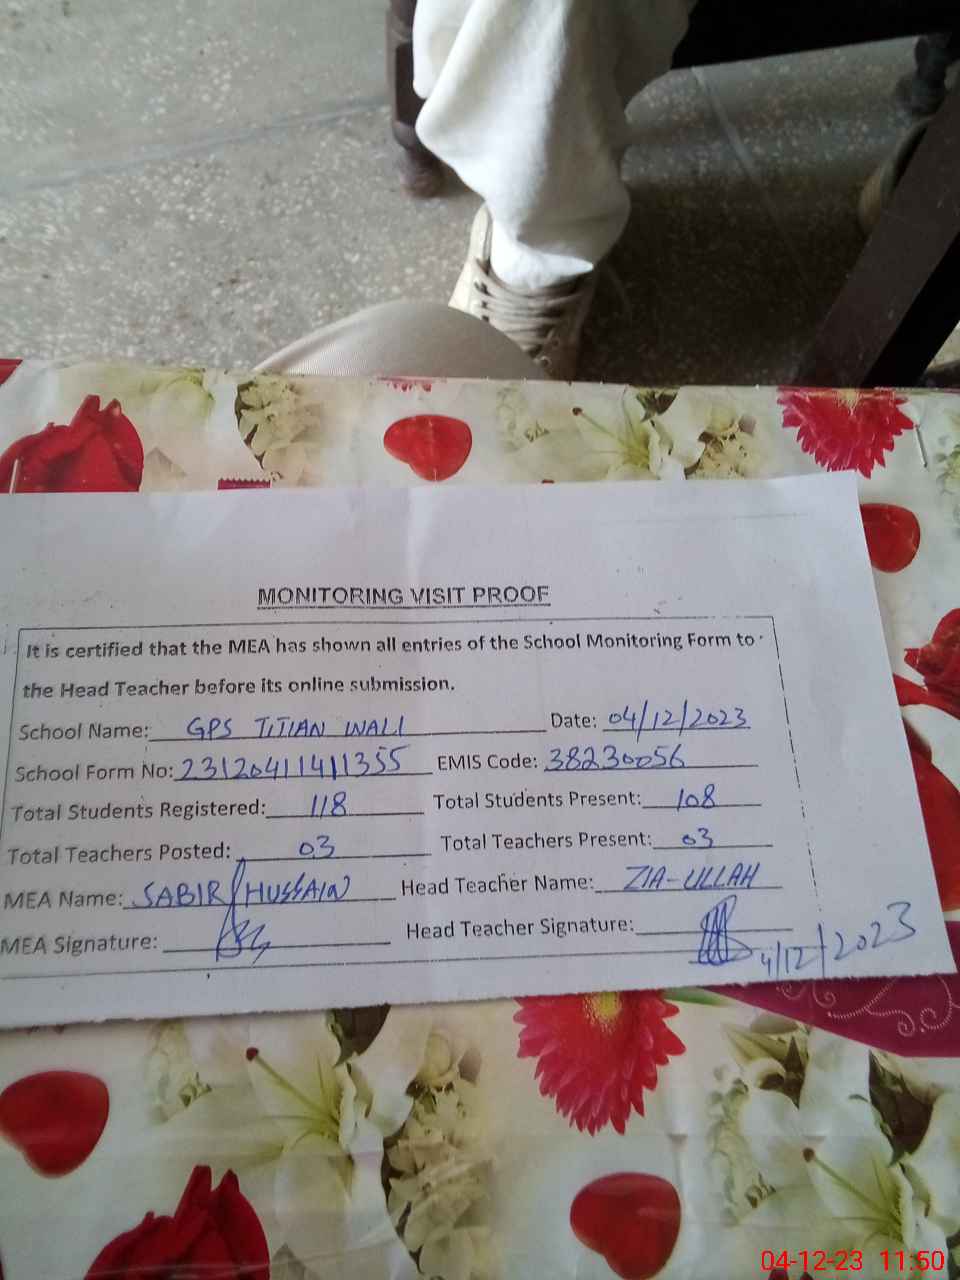 MONITORING VISIT PROOF
It is certified that the MEA has shown all entries of the School Monitoring Form to
the Head Teacher before its online submission.
School Name: GPS TITIAN WALI Date: 04/12/2023
School Form No: 23120411411355 EMIS Code: 38230056
Total Students Registered: 118 Total Students Present: 108
Total Teachers Posted: 03 Total Teachers Present: 03
MEA Name: SABIR HUSSAIN Head Teacher Name: ZIA-ULLAH
MEA Signature: Head Teacher Signature:
4/12/2023
04-12-23 11:50